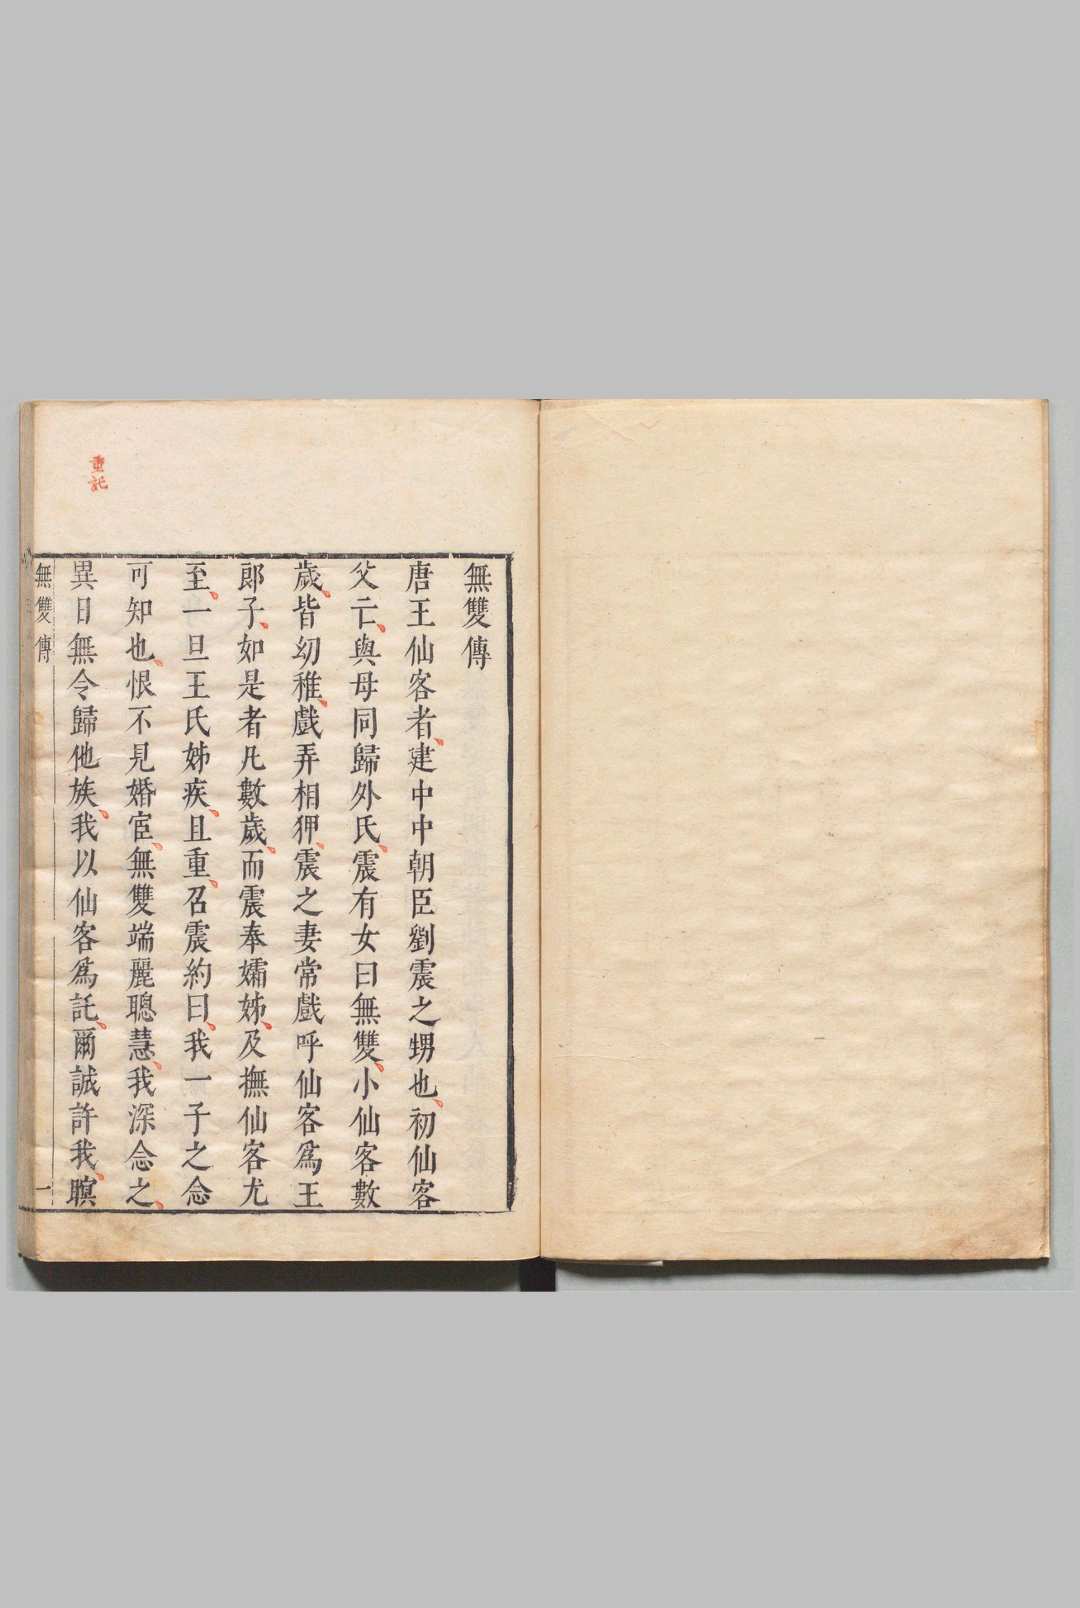 無雙傳
唐王仙客者、建中中朝臣劉震之甥也、初仙客
父亡、與母同歸外氏、震有女曰無雙、小仙客數
歲、皆幼稚、戲弄相狎、震之妻常戲呼仙客爲王
郎子、如是者凡數歲、而震奉孀姊、及撫仙客尤
至、一旦王氏姊疾、且重、召震約曰、我一子之念
可知也、恨不見婚宦、無雙端麗聰慧、我深念之、
異日無令歸他族、我以仙客爲託、爾誠許我、瞑
無雙傳
一
重託